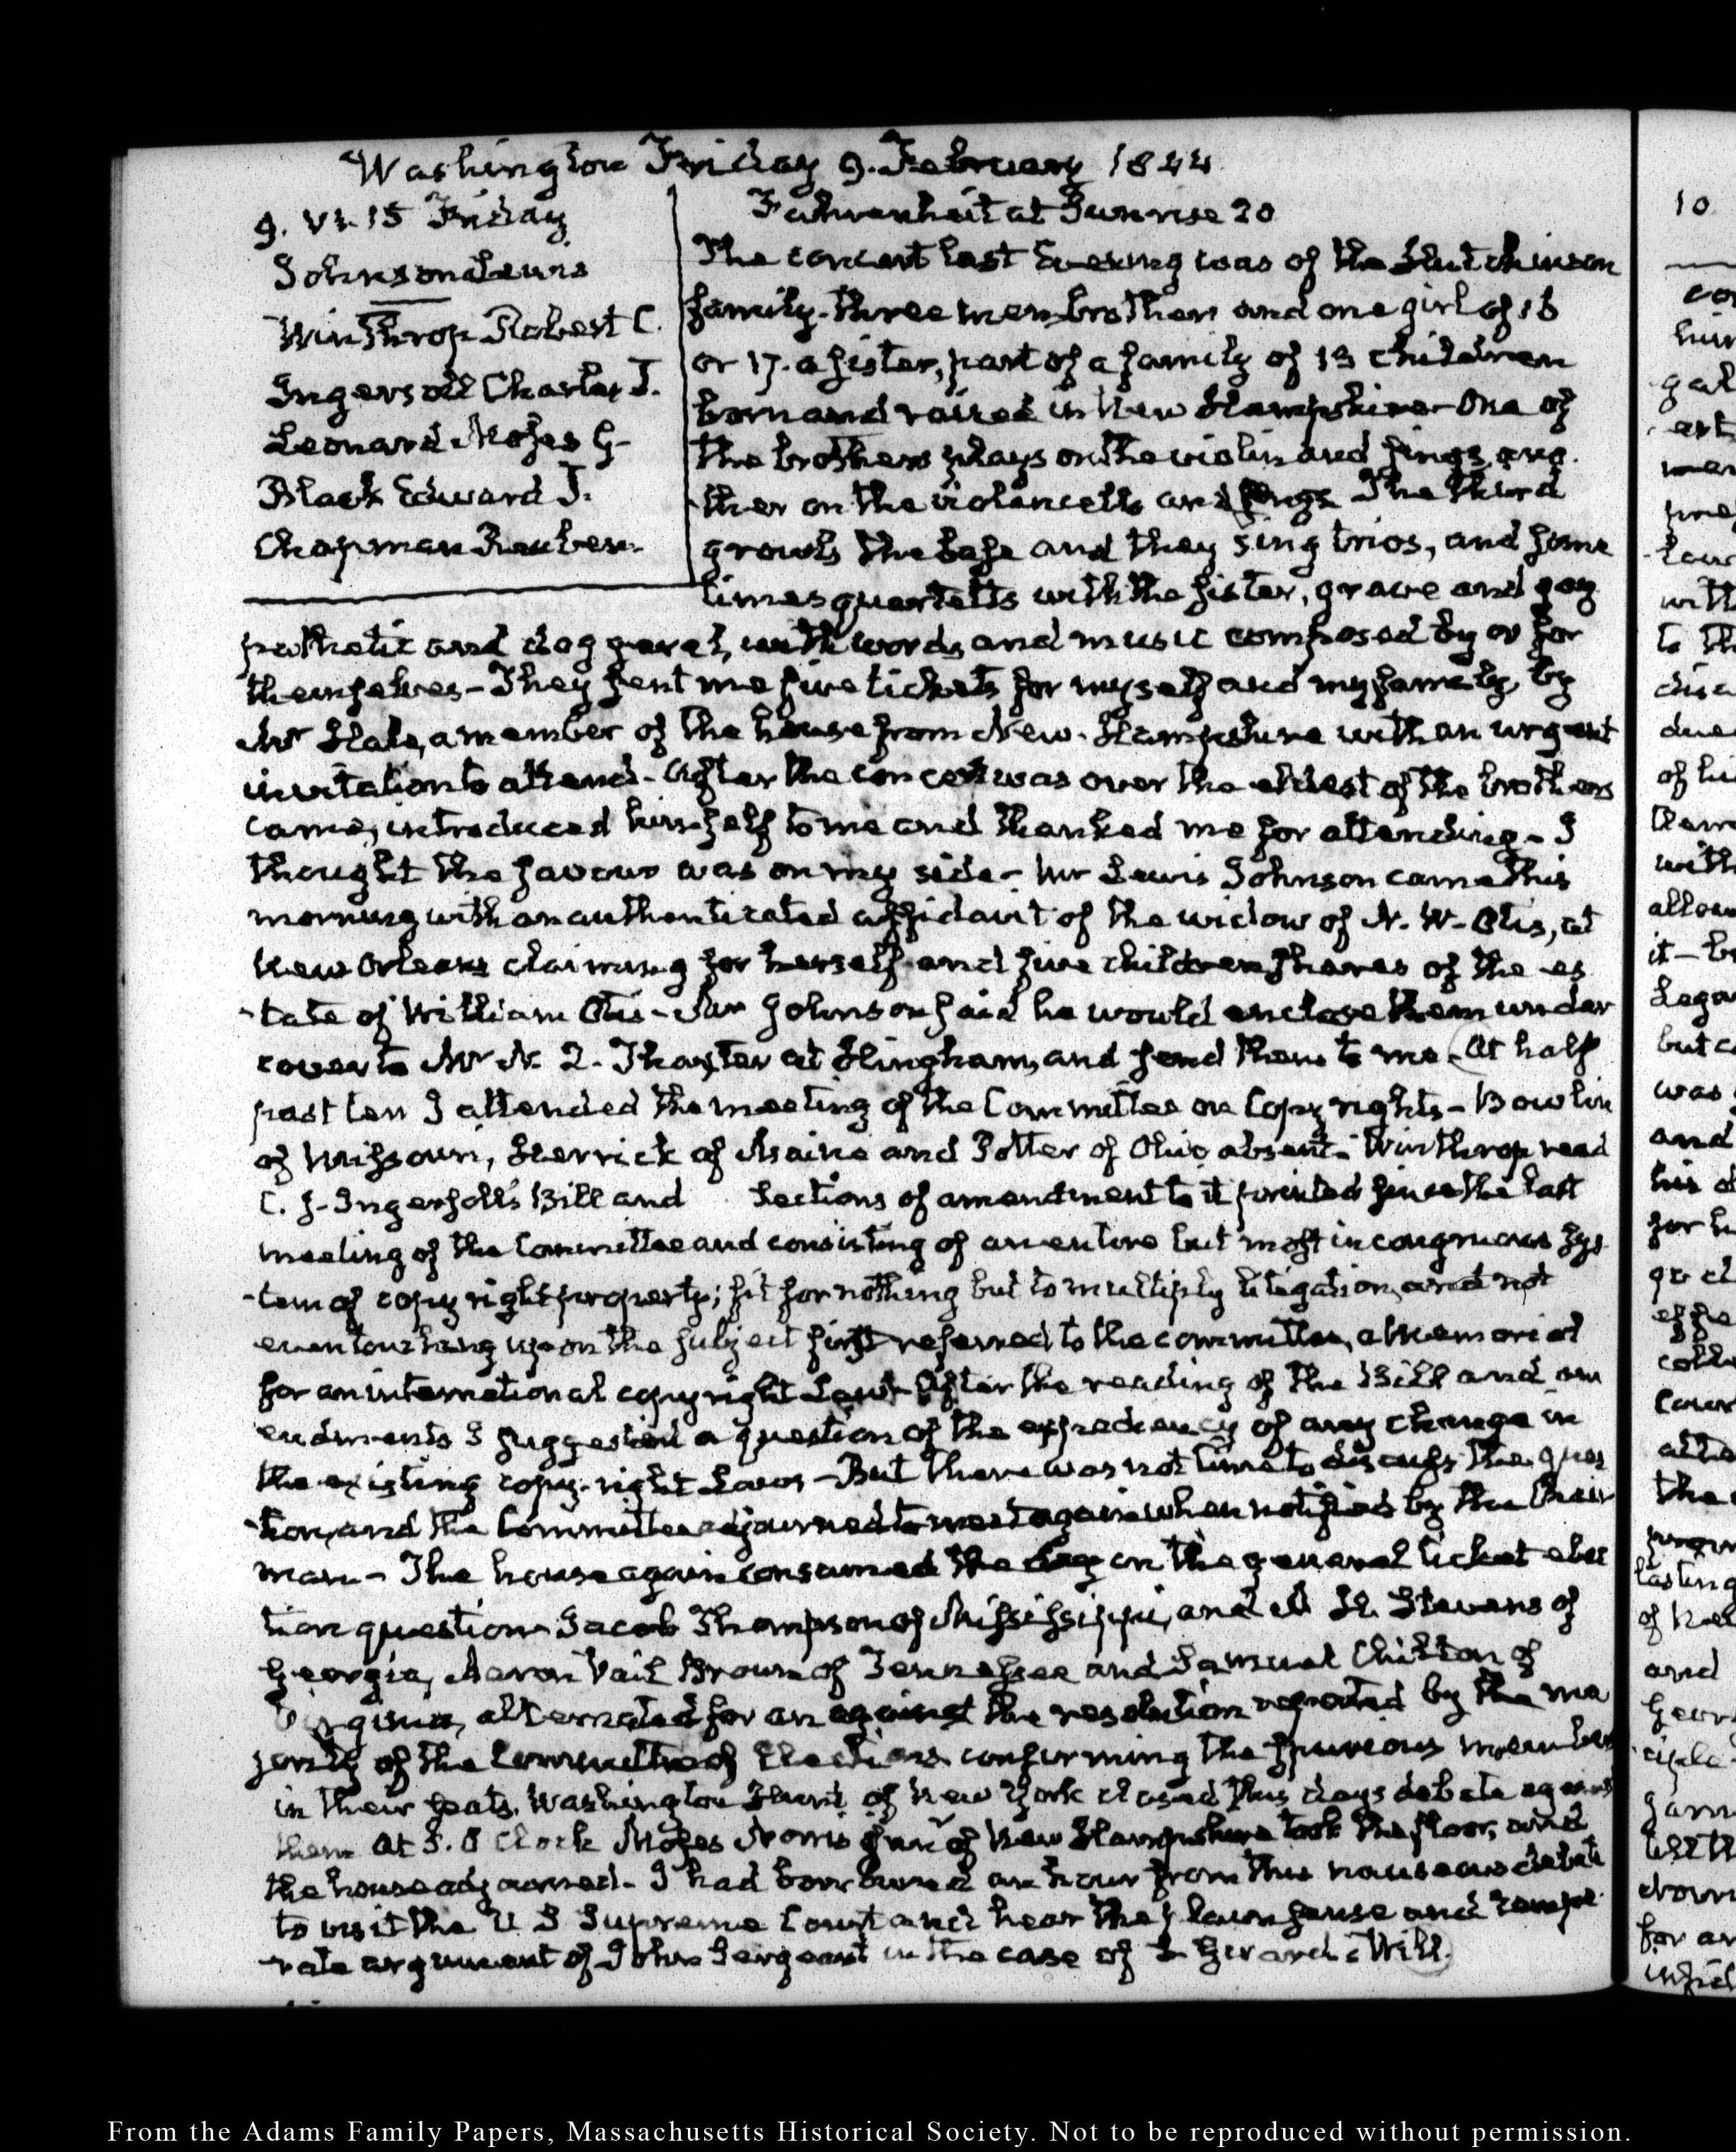 Washington Friday 9. February 1844
9. VI. 15 Friday
Johnson Lewis
Winthrop Robert C.
Ingersoll Charles J.
Leonard Moses G-
Black Edward J.
Chapman Reuben.
Fahrenheit at Sunrise 20
The concert last Evening was of the Hutchinson
family- three men brothers and one girl of 16
or 17. a sister, part of a family of 13 children
born and raised in New Hampshire- One of
the brothers plays on the violin and sings, ano-
ther on the violoncello and sings The third
growls the base and they sing trios, and some
times quartetts with the sister, grave and gay
pathetic and doggerel, with words and music composed by or for
themselves- They sent me five tickets for myself and my family, by
Mr Hale, a member of the house from New-Hampshire with an urgent
invitation to attend- After the concert was over the eldest of the brothers
came, introduced himself to me and thanked me for attending- I
thought the favour was on my side- Mr Lewis Johnson came this
morning with an authenticated affidavit of the widow of N. W. Otis, at
New Orleans claiming for herself and five children shares of the es
-tate of William Otis- Mr Johnson said he would enclose them under
cover to Mr N. Q. Thaxter at Hingham, and send them to me- At half
past ten I attended the meeting of the Committee on Copy rights- Bowlin
of Missouri, Herrick of Maine and Potter of Ohio absent- Winthrop read
C. J. Ingersoll's Bill and Sections of amendment to it printed since the last
meeting of the Committee and consisting of an entire but most incongruous sys
-tem of copy right property; fit for nothing but to multiply litigation, and not
even touching upon the subject first referred to the committee, a Memorial
for an international copyright Law- After the reading of the Bill and am
endments I suggested a question of the expediency of any change in
the existing copy-right Laws- But there was not time to discuss the ques
-tion, and the Committee adjourned to meet again when notified by the Chair
man- The house again consumed the day on the general ticket elec
tion question Jacob Thompson of Mississippi, and A H. Stevens of
Georgia, Aaron Vail Brown of Tennessee and Samuel Chilton of
Virginia, alternated for an against the resolution reported by the ma
jority of the Committee of Elections confirming the spurious members
in their seats. Washington Hunt of New York closed this days debate against
them At 3. O Clock Moses Norris junr of New Hampshire took the floor, and
the house adjourned- I had borrowed an hour from this nauseous debate
to visit the U S Supreme Court and hear the and tempe
-rate argument of John Sergeant in the case of S Girard's Will.
From the Adams Family Papers, Massachusetts Historical Society. Not to be reproduced without permission.